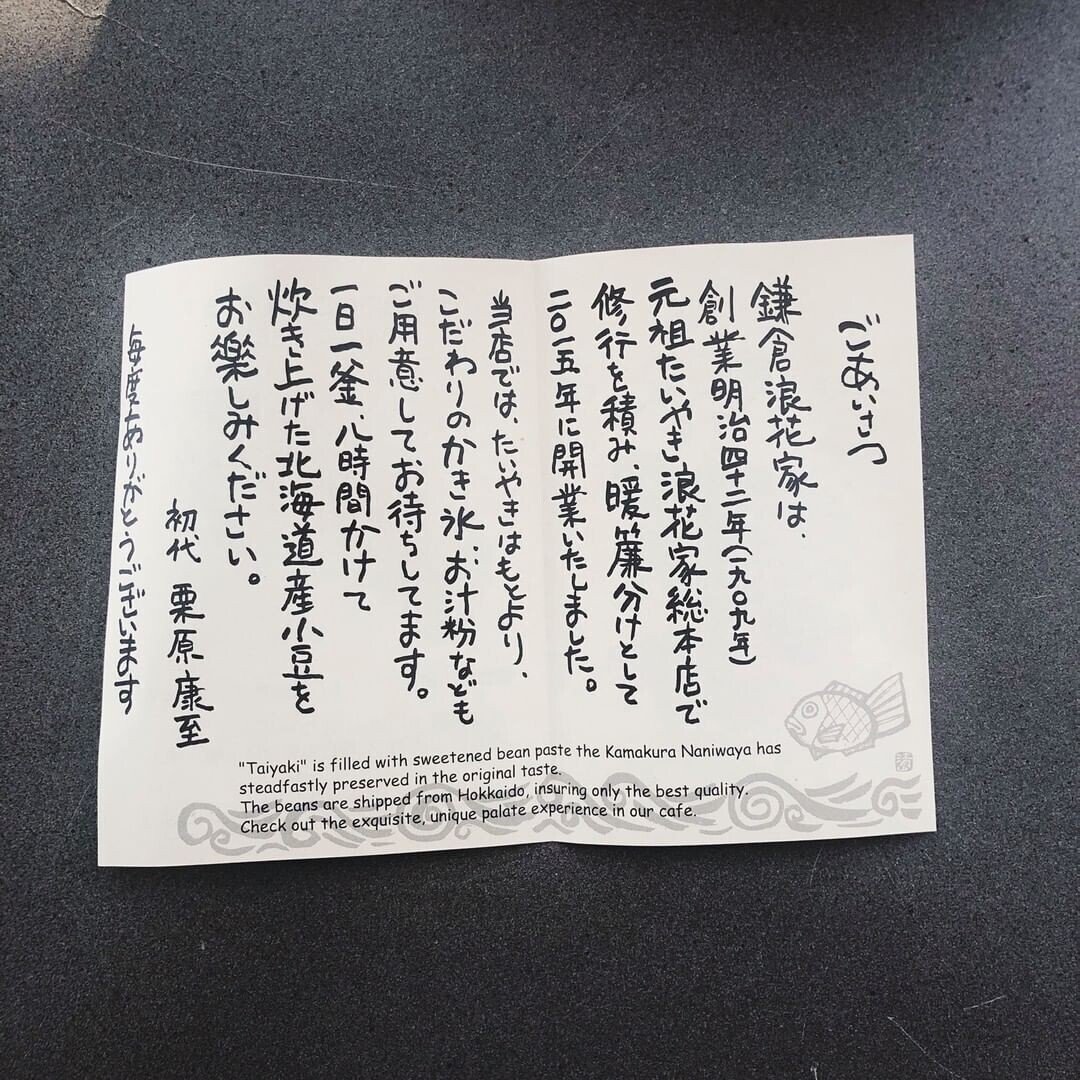 ごあいさつ
鎌倉浪花家は、
創業明治四十二年(一九〇九年)
元祖たいやき浪花家総本店で
修行を積み、暖簾分けとして
二〇一五年に開業いたしました。
当店では、たいやきはもとより、
こだわりのかき氷、お汁粉なども
ご用意してお待ちしてます。
一日一釜、八時間かけて
炊き上げた北海道産小豆を
お楽しみください。
初代 栗原康至
毎度ありがとうございます
"Taiyaki" is filled with sweetened bean paste the Kamakura Naniwaya has
steadfastly preserved in the original taste.
The beans are shipped from Hokkaido, insuring only the best quality.
Check out the exquisite, unique palate experience in our cafe.